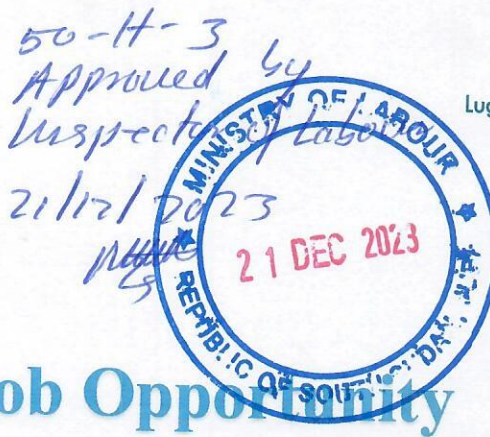 50-H-3
Approved by
Inspector of Labour
21/12/2023
Lug
MINISTRY OF LABOUR
21 DEC 2023
REPUBLIC OF SOUTH SUDAN
ob Opportunity